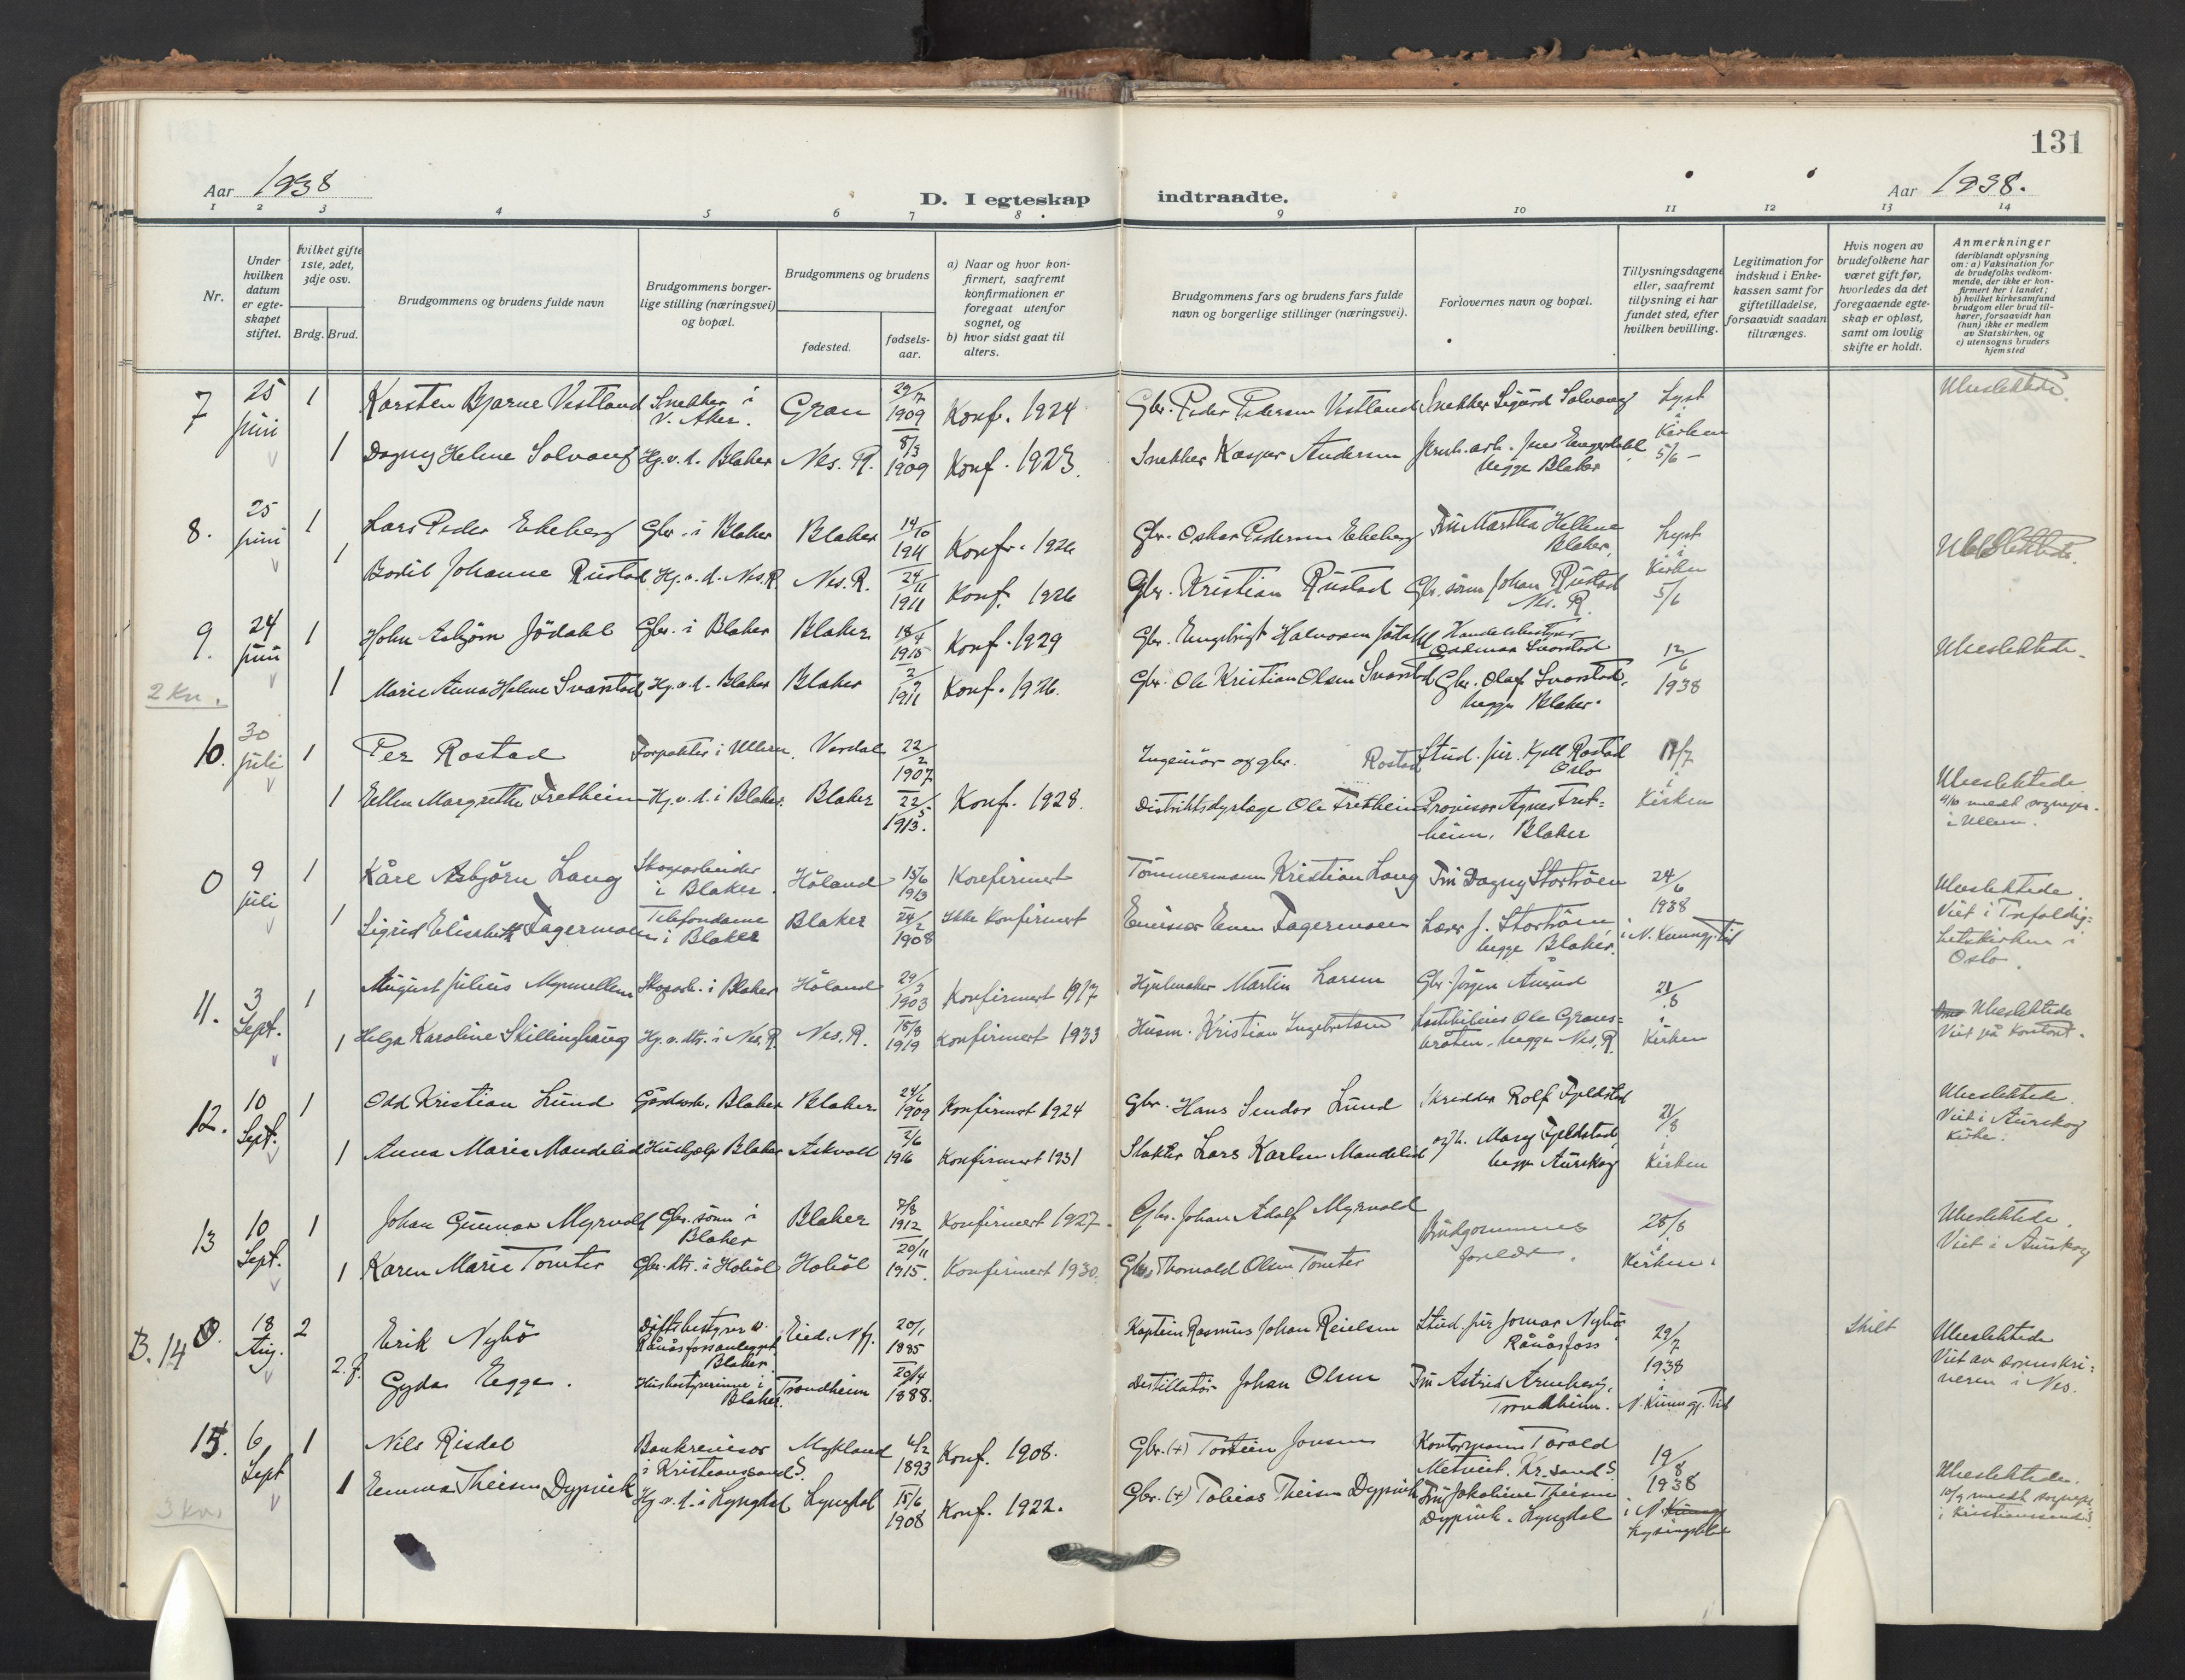 131
Aar 1938
D. I egteskap indtraadte.
Aar 1938.
1 2 3 4 5 6 7 8 9 10 11 12 13 14
Nr.
Under hvilken datum er egteskapet stiftet.
Hvilket gifte 1ste, 2det, 3dje osv.
Brdg. Brud.
Brudgommens og brudens fulde navn
Brudgommens borgerlige stilling (næringsvei) og bopæl.
Brudgommens og brudens
fødested.
fødselsaar.
a) Naar og hvor konfirmert, saafremt konfirmationen er foregaat utenfor sognet, og
b) hvor sidst gaat til alters.
Brudgommens fars og brudens fars fulde navn og borgerlige stillinger (næringsvei).
Forlovernes navn og bopæl.
Tillysningsdagene eller, saafremt tillysning ei har fundet sted, efter hvilken bevilling.
Legitimation for indskud i Enkekassen samt for giftetilladelse, forsaavidt saadan tiltrænges.
Hvis nogen av brudefolkene har været gift før, hvorledes da det foregaaende egteskap er opløst, samt om lovlig skifte er holdt.
Anmerkninger
(deriblandt oplysning om: a) Vaksination for de brudefolks vedkommende, der ikke er konfirmert her i landet; b) hvilket kirkesamfund brudgom eller brud tilhører, forsaavidt han (hun) ikke er medlem av Statskirken, og c) utensogns bruders hjemsted
7 25 juni 1 Karsten Bjarne Vestland Snekker i V. Aker. Gran 29/7 1909 Konf. 1924 Gbr. Peder Pedersen Vestland Snekker Sigurd Solvang Lyst i Kirken 5/6 Ubeslektede.
1 Dagny Helene Solvang Hj.v.d. Blaker Nes. R. 8/3 1909 Konf. 1923. Snekker Kasper Andersen begge Blaker
8. 25 juni 1 Lars Peder Ekeberg Gbr. i Blaker Blaker 14/10 1911 Konf. 1926 Gbr. Oskar Pedersen Ekeberg Fru Martha Hellene Blaker. Lyst i Kirken 5/6 Ubeslektede.
1 Bodil Johanne Rustad Hj.v.d. Nes. R. Nes. R. 24/11 1911 Konf. 1926 Gbr. Kristian Rustad Gbr. sønn Johan Rustad Nes. R.
9. 24 juni 1 John Asbjørn Jødahl Gbr. i Blaker Blaker 18/4 1915 Konf. 1929 Gbr. Engebrigt Halvorsen Jødahl Handelsbestyrer Svarstad 12/6 1938 Ubeslektede.
2 kr. 1 Marie Anna Helene Svarstad Hj.v.d. Blaker Blaker 2/9 1911 Konf. 1926. Gbr. Ole Kristian Olsen Svarstad Gbr. Olaf Svarstad, begge Blaker.
10. 30 juli 1 Per Rostad Forpakter i Ullern. Verdal 22/2 1907 Ingeniør og gbr. Rostad Stud. jur. Kjell Rostad Oslo 17/7 i Kirken
1 Ellen Margrethe Fretheim Hj.v.d. i Blaker. Blaker 22/5 1913. Konf. 1928. Distriktsdyrlæge Ole Fretheim Provisor Agnes Fretheim, Blaker Ubeslektede. 4/10 medt sognepr. i Ullern.
0 9 juli 1 Kåre Asbjørn Lang Skogsarbeider i Blaker. Høland 15/6 1913 Konfirmert Tømmermann Kristian Lang Fru Dagny Stortrøen 24/6 1938 Ubeslektede. Viet i Trefoldighetskirken i Oslo.
1 Sigrid Elisabeth Fagermoen Telefondame i Blaker Blaker 24/2 1908 Ikke Konfirmert Emissær Even Fagermoen Lærer J. Stortrøen, begge Blaker. i N. Kunngj. Tid
11. 3 Sept. 1 August Julius Myrmellem Skogsarb. i Blaker Høland 29/3 1903 Konfirmert 1917 Hjulmaker Martin Larsen Gbr. Jørgen Aurud 21/8 i Kirken Ubeslektede Viet på kontoret.
1 Helga Karoline Skillinghaug Hj.v. dtr. i Nes. R. Nes. R. 18/8 1919 Konfirmert 1933 Husm. Kristian Ingebretsen Ole Gransbråten. begge Nes. R.
12. 10 Sept. 1 Odd Kristian Lund Gårdsarb. Blaker Blaker 24/6 1909 Konfirmert 1924 Gbr. Hans Sendor Lund Skredder Rolf Fjeldstad 21/8 i Kirken Ubeslektede. Viet i Aurskog Kirke.
1 Anna Marie Mandelid Hushjelp Blaker Askvoll 2/6 1916 Konfirmert 1931 Slakter Lars Karlsen Mandelid og h. Mary Fjeldstad, begge Aurskog
13 10 Sept. 1 Johan Gunnar Myrvold Gbr. sønn i Blaker Blaker 7/8 1912 Konfirmert 1927. Gbr. Johan Adolf Myrvold Brudgommens foreldre. 28/8 i Kirken. Ubeslektede. Viet i Aurskog
1 Karen Marie Tomter Gbr. dtr. i Hobøl Hobøl 20/11 1915. Konfirmert 1930. Gbr. Thorvald Olsen Tomter
B. 14 18 Aug. 2 Erik Nybø Driftsbestyrer v. Rånåsfossanlegget, Blaker. Eid. Nfj. 20/1 1885 Kaptein Rasmus Johan Reielsen Stud. jur Jomar Nybø Rånåsfoss 29/7 1938 Skilt Ubeslektede Viet av sorenskriveren i Nes.
2. f. Gyda Egge. Husbestyrerinne i Blaker. Trondheim 20/4 1888. Destillatør Johan Olsen Fru Astrid Arneberg, Trondheim. i N. Kunngj. Tid
15. 6 Sept 1 Nils Risdal Bankrevisor i Kristianssand S. Mykland 4/2 1893 Konf. 1908. Gbr. (+) Torstein Jonsen Kontormann Torald Metveit. Kr. sand S. 19/8 1938
3 kr. 1 Emma Theisen Dypvik Hj.v.d. i Lyngdal Lyngdal 15/6 1908 Konf. 1922. Gbr. (+) Tobias Theisen Dypvik Fru Jakobine Theisen Dypvik. Lyngdal i N. Lysingsblad Ubeslektede. 10/9 medt sognepr. i Kristianssand S.